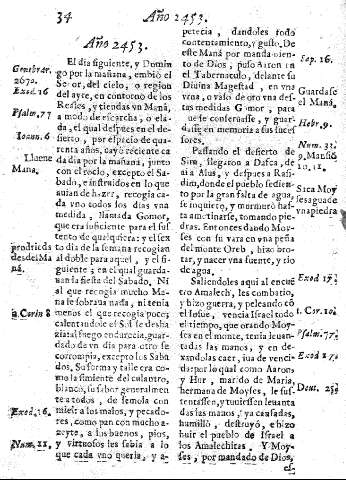 34
Año 2453.
Año 2453.
El dia siguiente, y Domin
go por la mañana, embió el
Señor, del cielo, o region
del ayre, en contorno de los
Reales, y tiendas vn Manà,
a modo de escarcha, o ela-
da, el qual despues en el de-
sierto, por espacio de qua-
renta años, cayò reciente ca
da dia por la mañana, junto
con el rocio, excepto el Saba
do, e instruidos en lo que
auian de hazer, recogia ca-
da vno todos los dias vna
medida, llamada Gomor,
que era suficiente para el sus
tento de qualquiera; y el sex
to dia de la semana recogian
al doble para aquel, y el si-
guiente; en el qual guarda-
uan la fiesta del Sabado. Ni
al que recogia mucho Ma-
nà le sobraua nada, ni tenia
menos el que recogia poco;
calentandole el Sol se deshа-
zia; al fuego endurecia, guar-
dado de vn dia para otro se
corrompia, excepto los Saba
dos. Su forma y talle era co-
mo la simiente del culantro,
blanco, su sabor generalmen
te a todos, de semola con
miel: a los malos, y pecado-
res, como pan con mucho a-
zeyte, a los buenos, pios,
y virtuosos les sabia a lo
que cada vno queria, y a-
Genebrar.
2670.
Exod. 16
Psalm. 77
Ioann. 6
Llueue
Mana.
prodigios
desdel Ma
nà.
2. Corin 8
Exod. 16.
Num. 11.
petecia, dandoles todo
contentamiento, y gusto. De
este Manà por mandamien-
to de Dios, puso Aaron en
el Tabernaculo, delante su
Diuina Magestad, en vna
vrna, o vaso de oro vna des-
tas medidas Gomor, para
que se conseruasse, y guar-
dasse en memoria a sus suce
sores.
Passando el desierto de
Sin, llegaron a Dafca, de a
ia a Alus, y despues a Rafi-
dim, donde el pueblo sedien-
to por la gran falta de agua,
se inquietò, y murmurò has-
ta amotinarse, tomando pie-
dras. Entonces dando Moy-
ses con su vara en vna peña
del monte Oreb, hizo bro-
tar, y nacer vna fuente, y rio
de agua.
Saliendoles aqui al encuẽ
tro Amalech, les combatio,
y hizo guerra, y peleando cõ
el Iosue, vencia Israel todo
el tiempo, que orando Moy-
ses en el monte, tenia leuan-
tadas las manos, y en de-
xandolas caer, iua de venci-
da: por lo qual como Aaron
y Hur, marido de Maria,
hermana de Moyses, le sus-
tentassen, y tuuiessen leuanta
das las manos; y a cansadas,
humillò, destruyò, e hizo
huir el pueblo de Israel a
los Amalechitas. Y Moy-
ses, por mandado de Dios,
es-
Sap. 16.
Guardase
el Manà.
Hebr. 9.
Num. 33.
Saca Moy
ses agua de
vna piedra
Exod 17.
1. Cor. 10
Psalm. 77.
Exod 17.
Deut. 25.